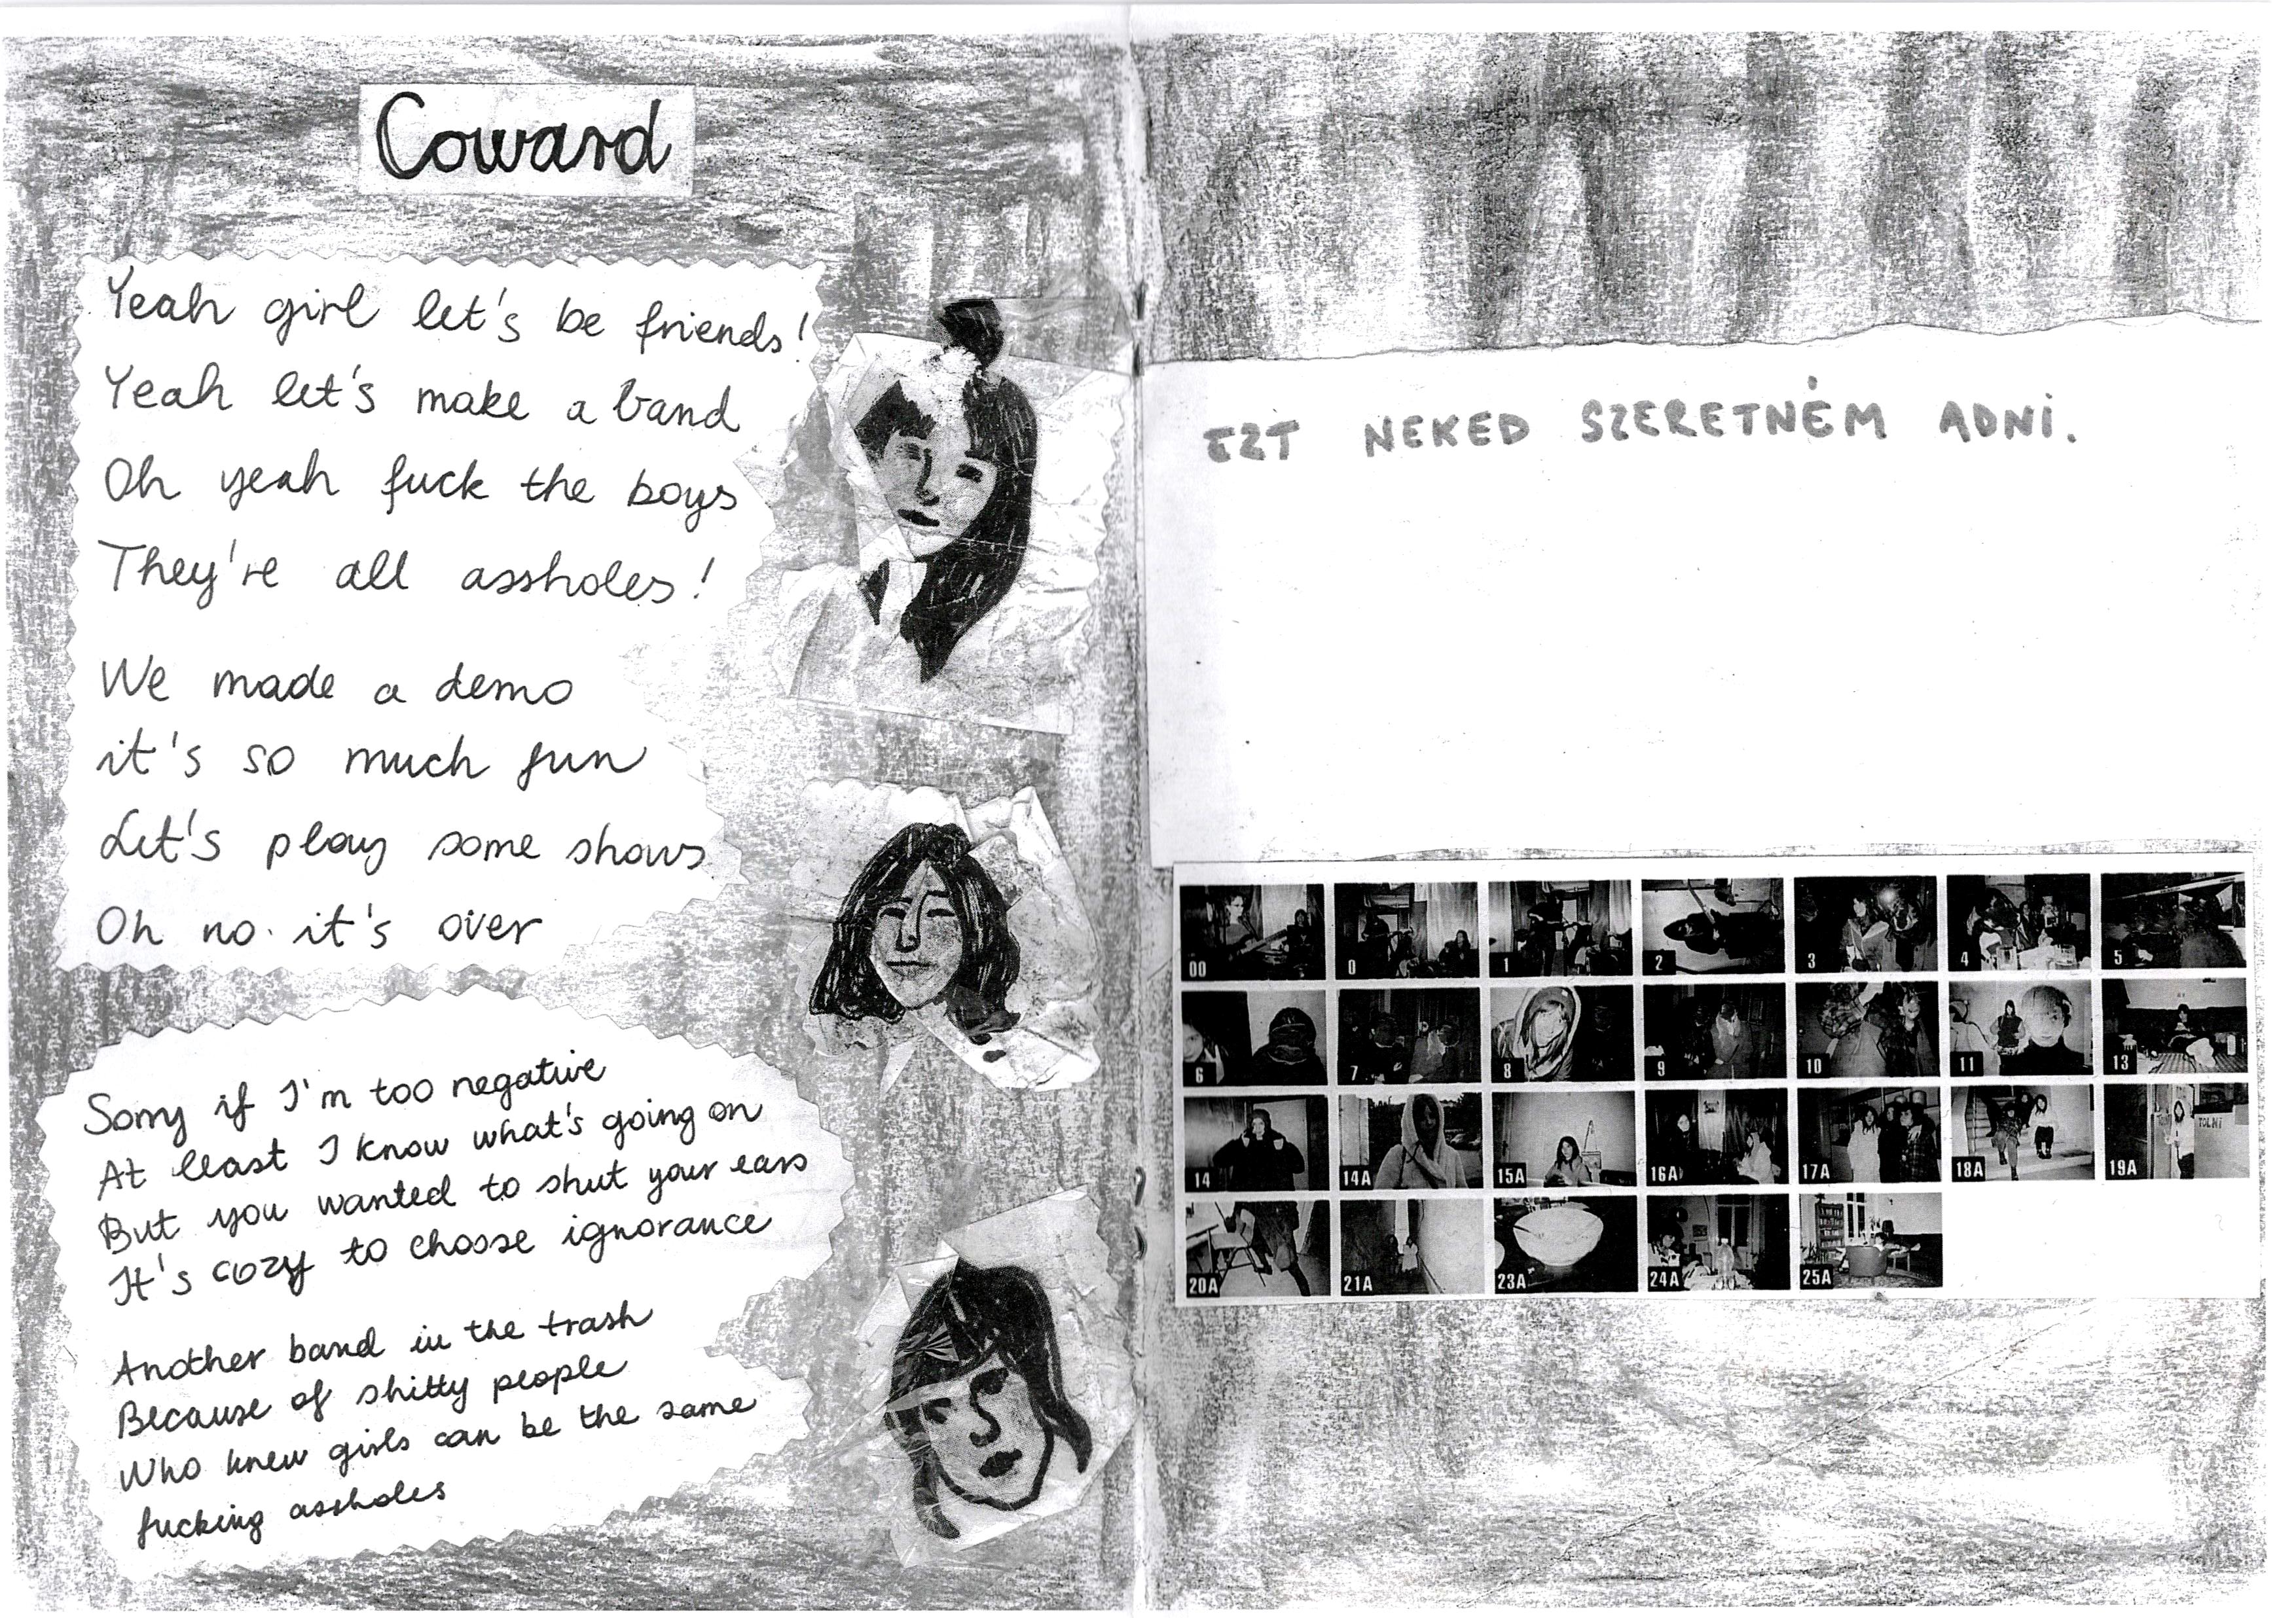 Coward
Yeah girl let's be friends!
Yeah let's make a band
Oh yeah fuck the boys
They're all assholes!
We made a demo
it's so much fun
Let's play some shows
Oh no it's over
Sorry if I'm too negative
At least I know what's going on
But you wanted to shut your ears
It's cozy to choose ignorance
Another band in the trash
Because of shitty people
Who knew girls can be the same
fucking assholes
EZT NEKED SZERETNÉM ADNI.
00 0 1 2 3 4 5
6 7 8 9 10 11 13
14 14A 15A 16A 17A 18A 19A
TOLNI
20A 21A 23A 24A 25A